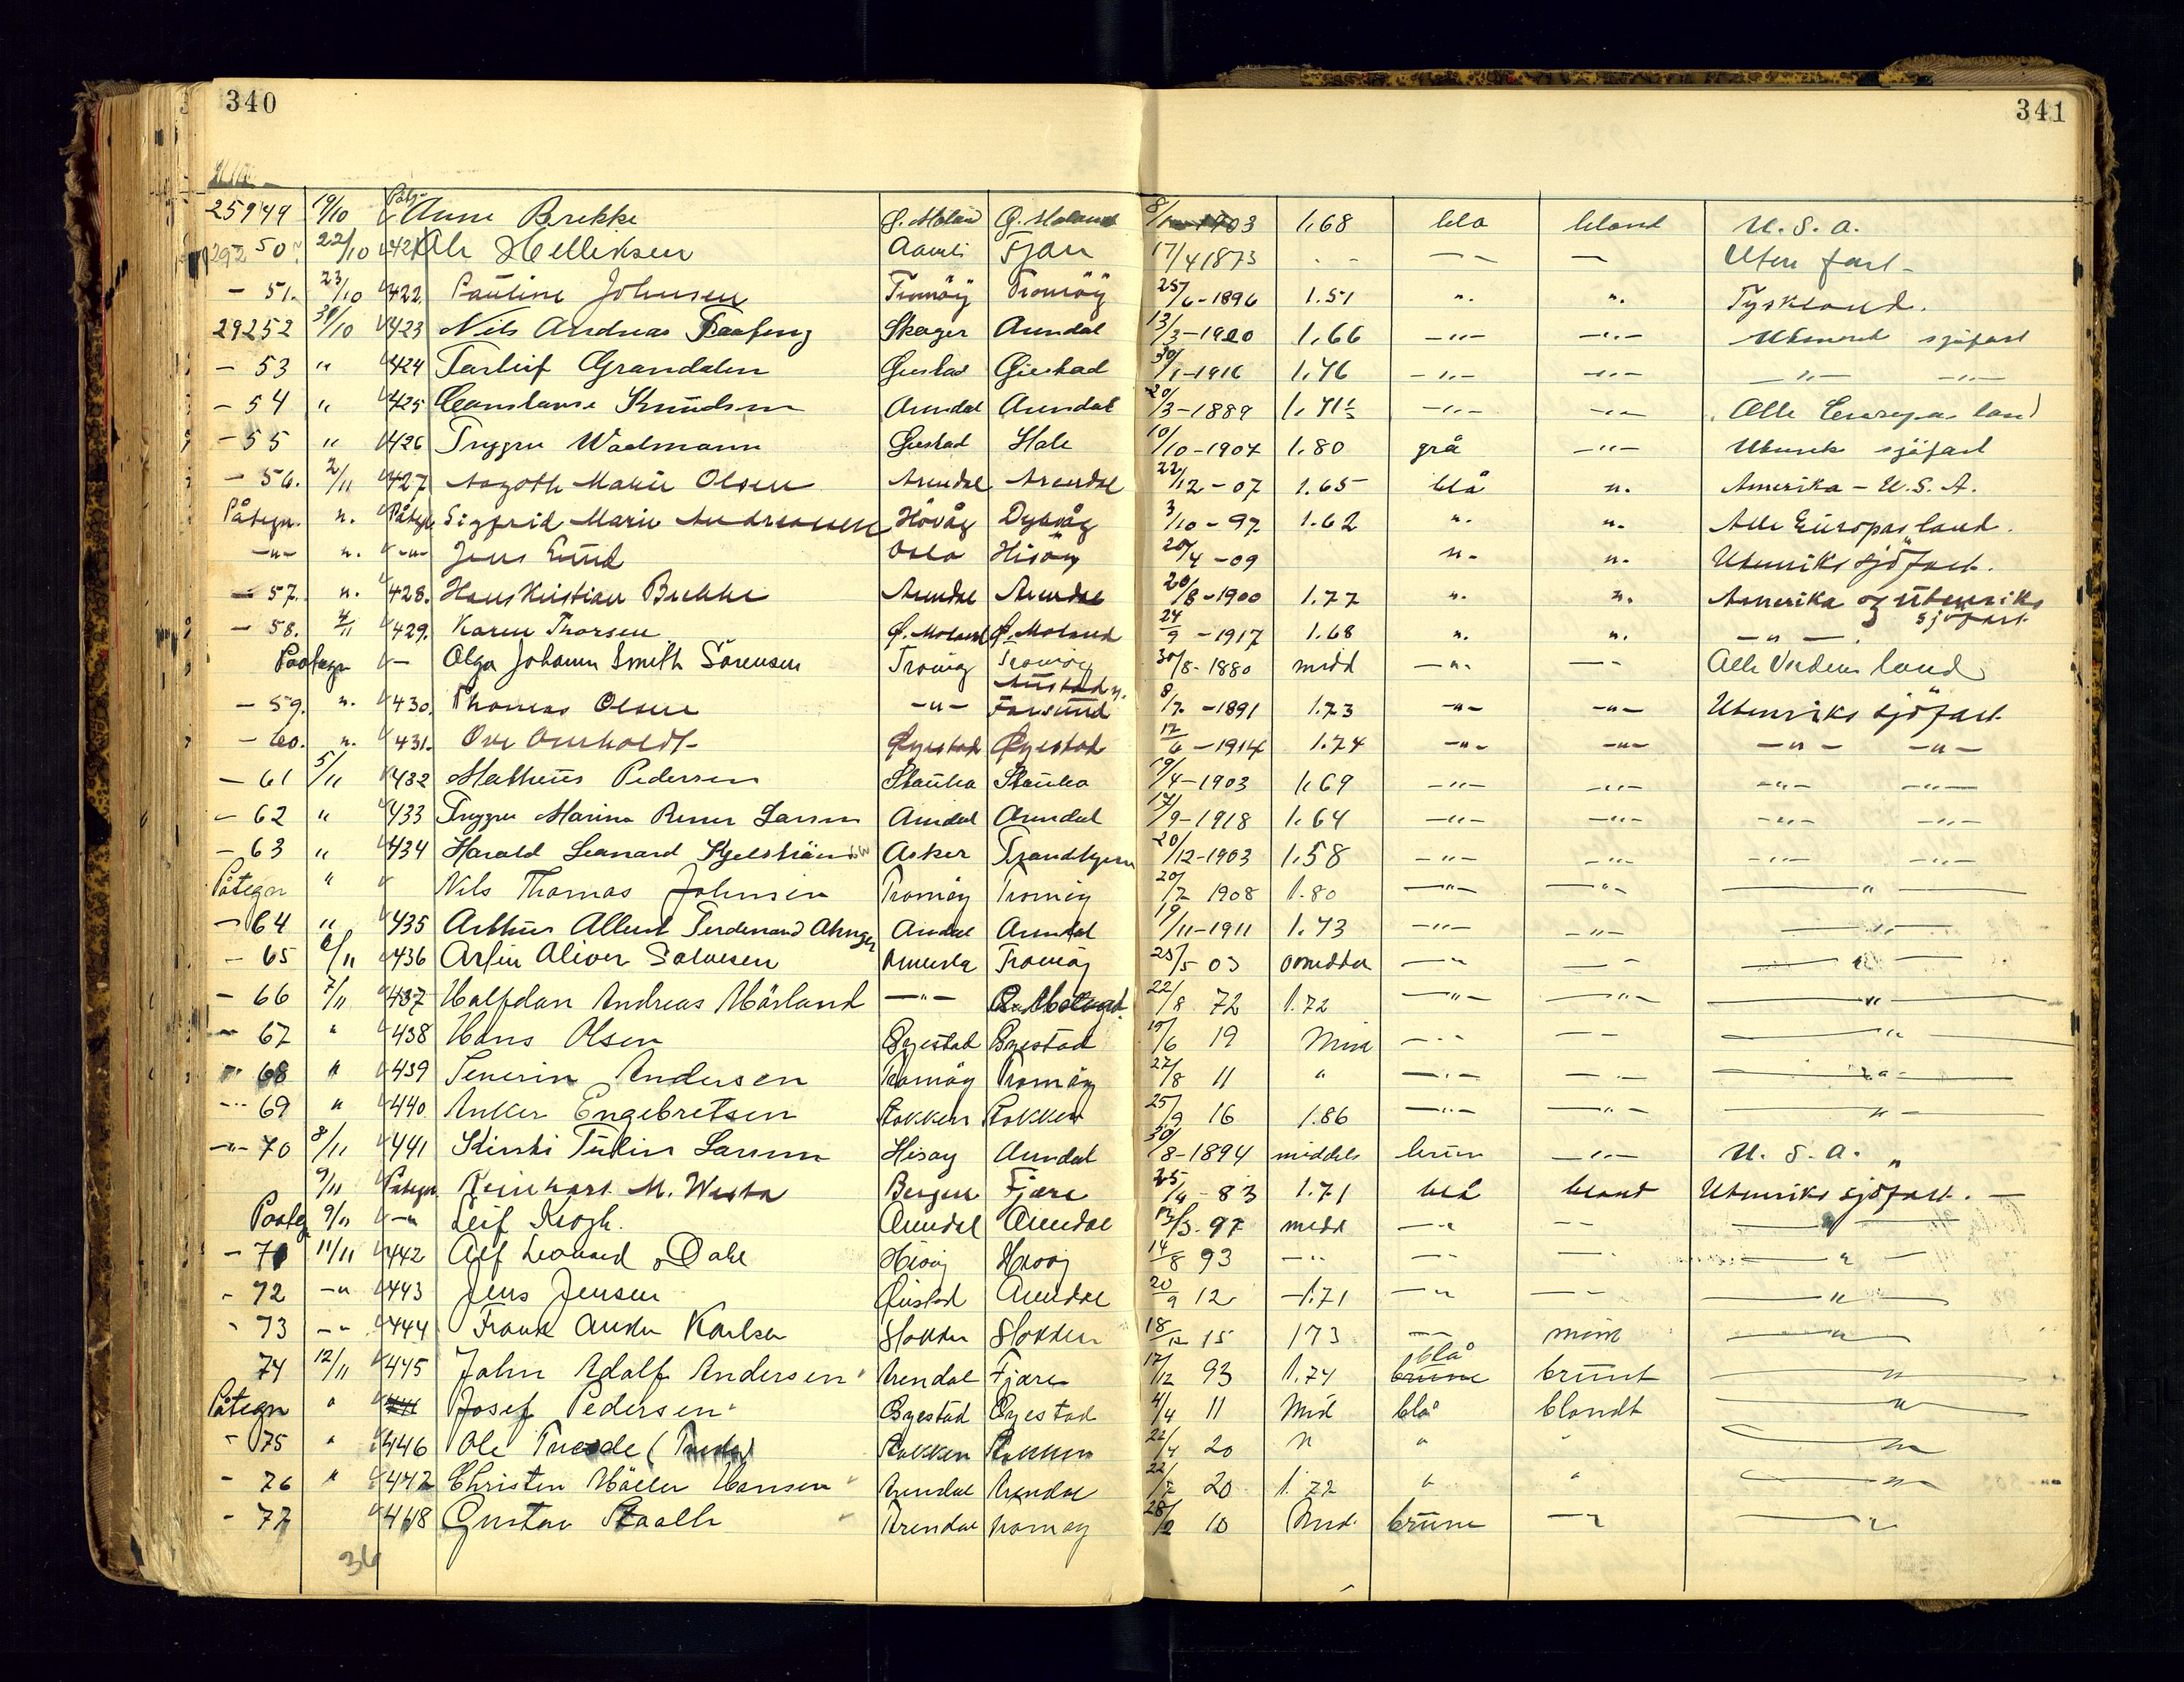 340
341
25949 19/10 Påtg. Anne Brekke Ø. Moland Ø. Moland 8/ 1903 1.68 blå blond U. S. A.
292 50. 22/10 421 Ole Helliksen Aamli Fjære 17/4 1873 - - - - — Uten fart -
- 51. 23/10 422 Pauline Johnsen Tromöy Tromöy 25/6-1896 1.51 ". ". Tyskland.
29252 30/10 423 Nils Andreas Arendal 13/3-1920 1.66 -"- -"- Utenrik sjöfart
- 53 " 424 Tarleif Grandalen Giestad Giestad 30/1-1916 1.76 -"- -"- -"- -"-
- 54 " 425 Constanse Knudsen Arendal Arendal 20/3-1889 1.71½ -"- -"- Alle Europas land
- 55 " 426 Trygve Wadmann Giestad Hole 10/10-1904 1.80 grå -"- Utenrik sjöfart
- 56. 2/11 427 Aagoth Marie Olsen Arendal Arendal 22/12-07 1.65 blå ". Amerika - U.S.A.
Påtegn. ". Påtegn Sigfrid Marie Andreassen Hövåg Dypvåg 3/10-97 1.62 ". ". Alle Europas land.
-"- ". -"- Jens Lund Oslo Hisöy 20/4-09 ". ". Utenriks sjöfart.
- 57. ". 428. Hans Kristian Brekke Arendal Arendal 20/8-1900 1.77 ". ". Amerika og utenriks
sjöfart.
- 58. 4/11 429. Karen Thorsen Ø. Moland Ø. Moland 24/9-1917 1.68 ". ". -"-
Paategn - Olga Johanne Smith Sörensen Tromöy Tromöy 30/8-1880 midd -"- - - Alle Verdens land
- 59. ". 430. Thomas Olsen -"- Austad p. Farsund 8/7-1891 1.73 -"- -"- Utenriks sjöfart
- 60. ". 431. Ove Overholdt Øyestad Øyestad 12/6-1914 1.74 -"- -"- -"- -"-
- 61 5/11 432 Matheus Pedersen 19/4-1903 1.69 -"- -"- -"- -"-
- 62 " 433 Trygve Marine Larsen Arendal Arendal 17/9-1918 1.64 -"- -"- -"- -"-
- 63 " 434 Harald Leonard Kjelström Asker 20/12-1903 1.58 -"- -"- -"- -"-
Påtegn " Nils Thomas Johnsen Tromöy Tromöy 20/2 1908 1.80 -"- -"- -"-
- 64 " 435 Arthur Albert Ferdinand Arendal Arendal 19/11-1911 1.73 -"- -"- -"-
- 65 6/11 436 Arfin Oliver Salvesen Amerika Tromöy 25/5 03 -"- - - -"-
- 66 7/11 437 Halfdan Andreas Hörland -"- 22/8 72 1.72 -"- -"- -"-
- 67 " 438 Hans Olsen Øyestad Øyestad 15/6 19 - - - - -"-
- 68 " 439 Severin Andersen Tromöy Tromöy 27/8 11 " -"- - - -"-
- 69 " 440 Anker Engebretsen Stokken Stokken 25/9 16 1.86 -"- -"- "
-"- 70 8/11 441 Larsen Hisöy Arendal 30/8-1894 middels brun -"- U. S. A. "
9/11 Påtegn. Reinhart M. Bergen Fjære 25/4-83 1.71 blå blond Utenriks sjöfart. -
Paateg 9/11 -" Leif Krogh. Arendal Arendal 13/3.97 midd -"- - - "
- 71 11/11 442 Alf Leonard Dahl Hisöy Hisöy 14/8 93 -"- - - - - "
- 72 -" 443 Jens Jensen Øiestad Arendal 20/9 12 -1.71 -"- - - "
- 73 -" 444 Frank Anker Karlsen Stokken Stokken 18/12 15 173 - mörk "
74 12/11 445 John Adolf Andersen Arendal Fjære 17/12 93 1.74 blå brune brunt "
Påtegn " Josef Pedersen Øyestad Øyestad 4/4 11 Mid blå blondt "
- 75 " 446 Ole Stokken Stokken 22/4 20 " " "
- 76 " 447 Christen Möller Hansen Arendal Arendal 22/7 20 1.72 " " "
- 77 448 Gustav Staalli Arendal Tromöy 28/2 10 Mid. brune -"- "
36